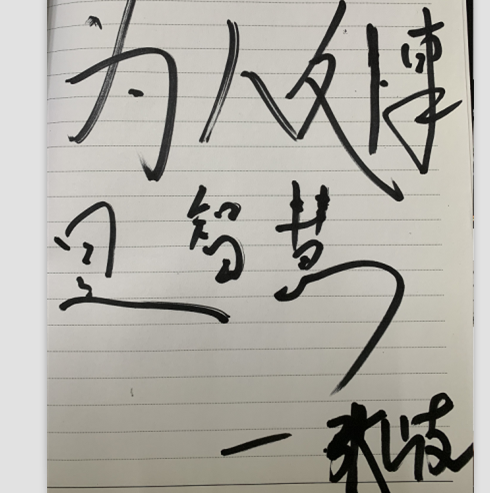 为人处事
是智慧
一 张岐